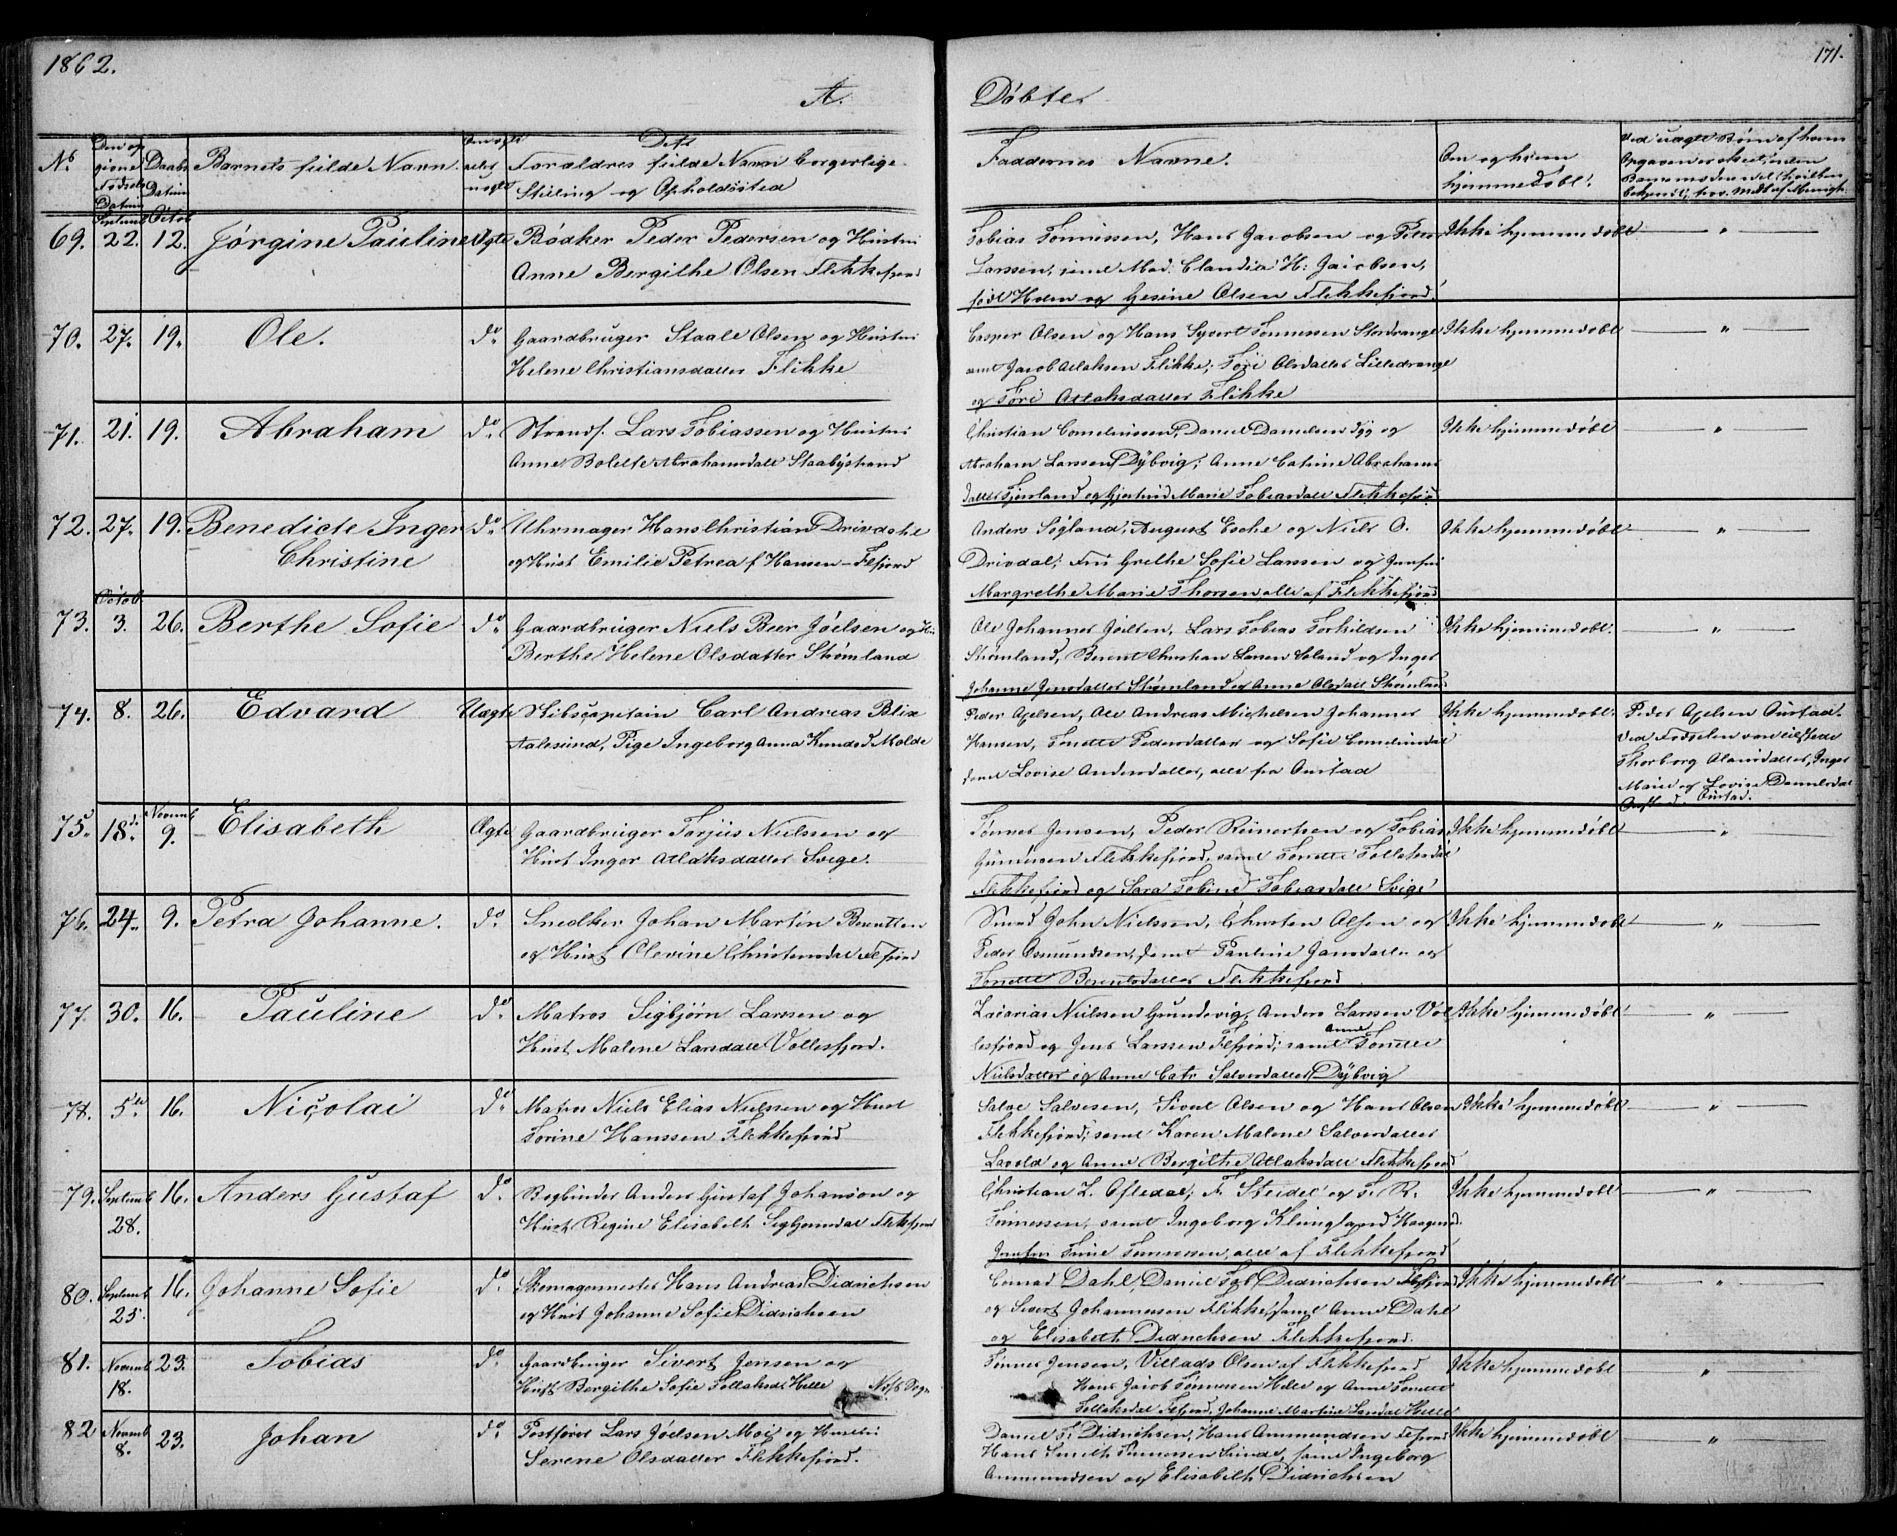 1862.
171.
A. Döbter
No
Den op
givne
Fødsels
Datum
Daabs
Datum
Barnets fulde Navn.
Om ægte
eller
uægte
Dets
Forældres fulde Navn borgerlige
Stilling og Opholdssted
Faddernes Navne.
Om og hvem
hjemmedøbt.
Septemb Octob
69. 22. 12. Jörgine Pauline Ægte Bødker Peder Pedersen og Hustru
Anne Bergithe Olsen Flekkefjord
Tobias Tønnessen, Hans Jacobsen og Peter
Larssen, samt Mad. Claudia H: Jacobsen,
født Holm og Gesine Olsen Flekkefjord.
Ikke hjemmedøbt — " —
70. 27. 19. Ole. do Gaardbruger Staale Olsen og Hustru
Helene Christiansdatter Flikke
Casper Olsen og Hans Syvert Tønnessen Stordrange
samt Jacob Atlaksen Flikke; Töri Olsdatter Lilledrange
og Töri Atlaksdatter Flikke
Ikke hjemmedøbt — " —
71. 21. 19. Abraham do Strands. Lars Tobiassen og Hustru
Anne Bolette Abrahamsdatt Staabystrand
Christian Corneliussen, Daniel Danielsen og
Abraham Larssen Dybvig; Anne Catrine Abrahams
datter Fjemland og Gjertrud Marie Tobiasdatt Flekkefjord
Ikke hjemmedøbt — " —
72. 27. 19. Benedicte Inger do Uhrmager Hans Christian Drivdahl
Christine
og Hust Emilie Petrea f Hansen - Flfjord
Anders Sögland, August Esche og Niels O.
Drivdal; Fru Grethe Sofie Larssen og Jomfru
Margrethe Marie Thorsen, alle af Flekkefjord
Ikke hjemmedøbt — " —
Octob
73. 3. 26. Berthe Sofie do Gaardbruger Niels Beer Jöelsen og Hu
Berthe Helene Olsdatter Strømland
Ole Johannes Joelsen, Lars Tobias Torkildsen
Strømland, Berent Christian Larsen Soland og Inger
Johanne Jensdatter Strømland og Anne Olsdatt Strømland
Ikke hjemmedøbt. — " —
74. 8. 26. Edvard Uægte Skibscapitain Carl Andreas Blix
Aalesund, Pige Ingeborg Anna Knudsd Molde
Peder Axelsen, Ole Andreas Michelsen Johannes
Hansen, Tonette Pedersdatter og Sofie Corneliusdat
samt Lovise Andersdatter, alle fra Anstad
Ikke hjemmedøbt.
Peder Axelsen Anstad.
Ved Fødselen var tilstede
Thorborg Olausdatter, Inger
Marie og Lovise Danielsdat
Anstad.
Novemb
75. 18d. 9. Elisabeth Ægte Gaardbruger Torjuis Nielssen og
Hust Inger Atlaksdatter Svege.
Tønnes Jensen, Peder Reinertsen og Tobias
Gundersen Flekkefjord, samt Tonette Tollaksdat
Flekkefjord og Sara Tobine Tobiasdatt Svige
Ikke hjemmedøbt — " —
76. 24. 9. Petra Johanne. do Snedker Johan Martin Berntsen
og Hust Olevine Christensdat Flfjord
Smed John Nielssen, Christen Olsen og
Peder Osmundsen, samt Pauline Jansdatter og
Tonette Berentsdatter Flekkefjord
Ikke hjemmedøbt — " —
77. 30. 16. Pauline do Matros Sigbjørn Larsen og
Hust. Malene Larsdatt Vollesfjord.
Zacarias Nielssen Grundevig, Anders Larssen Vol
lesfjord og Jens Larssen Flfjord; samt Anne Tonette
Nielsdatter og Anne Catr Salvesdatter Dybvig
Ikke hjemmedøbt — " —
78. 5te 16. Niçolai do Matros Niels Elias Nielssen og Hust
Torine Hanssen Flekkefjord
Salve Salvesen, Sivert Olsen og Hans Olsen
Flekkefjord; samt Karen Malene Salvesdatter
Lavold og Anne Bergithe Atlaksdatt Flekkefjord
Ikke hjemmedøbt — " —
79. Septemb 28. 16. Anders Gustaf do Bogbinder Anders Gustaf Johanson og
Hust. Regine Elisabeth Sigbjørnsdat Flekkefjord
Christian L. Ofledal; F. Steidel og T. R.
Tønnessen, samt Ingeborg Klungland Haagensd.
Jomfru Tinie Tønnessen, alle af Flekkefjord
Ikke hjemmedøbt — " —
80. Septemb 25. 16. Johanne Sofie do Skomagermester Hans Andreas Didrichsen
og Hust Johanne Sofie Didrichsen
Conrad Dahl, Daniel Tob. Didrichsen Flfjord
og Sivert Johannessen Flikke, samt Anne Dahl
og Elisabeth Didrichsen Flekkefjord.
Ikke hjemmedøbt — " —
81. Novemb 18. 23. Tobias do Gaardbruger Sivert Jensen og
Hust. Bergithe Sofie Tollaksd. Helle Næs Sogn
Tønnes Jensen, Villads Olsen af Flekkefjord
Hans Jacob Tønnessen Helle og Anne Tonette
Tollaksdat Flfjord, Johanne Martine Larsdat Helle
Ikke hjemmedøbt "
82 Novemb 8. 23. Johan do Postfører Lars Jöelsen Moi og Hustru
Serene Olsdatter Flekkefjord.
Daniel T. Didrichsen, Hans Ammundsen Flfjord
Hans Smith Tønnessen Sunde, samt Ingeborg
Ammundsen og Elisabeth Didrichsen
Ikke hjemmedøbt — " —